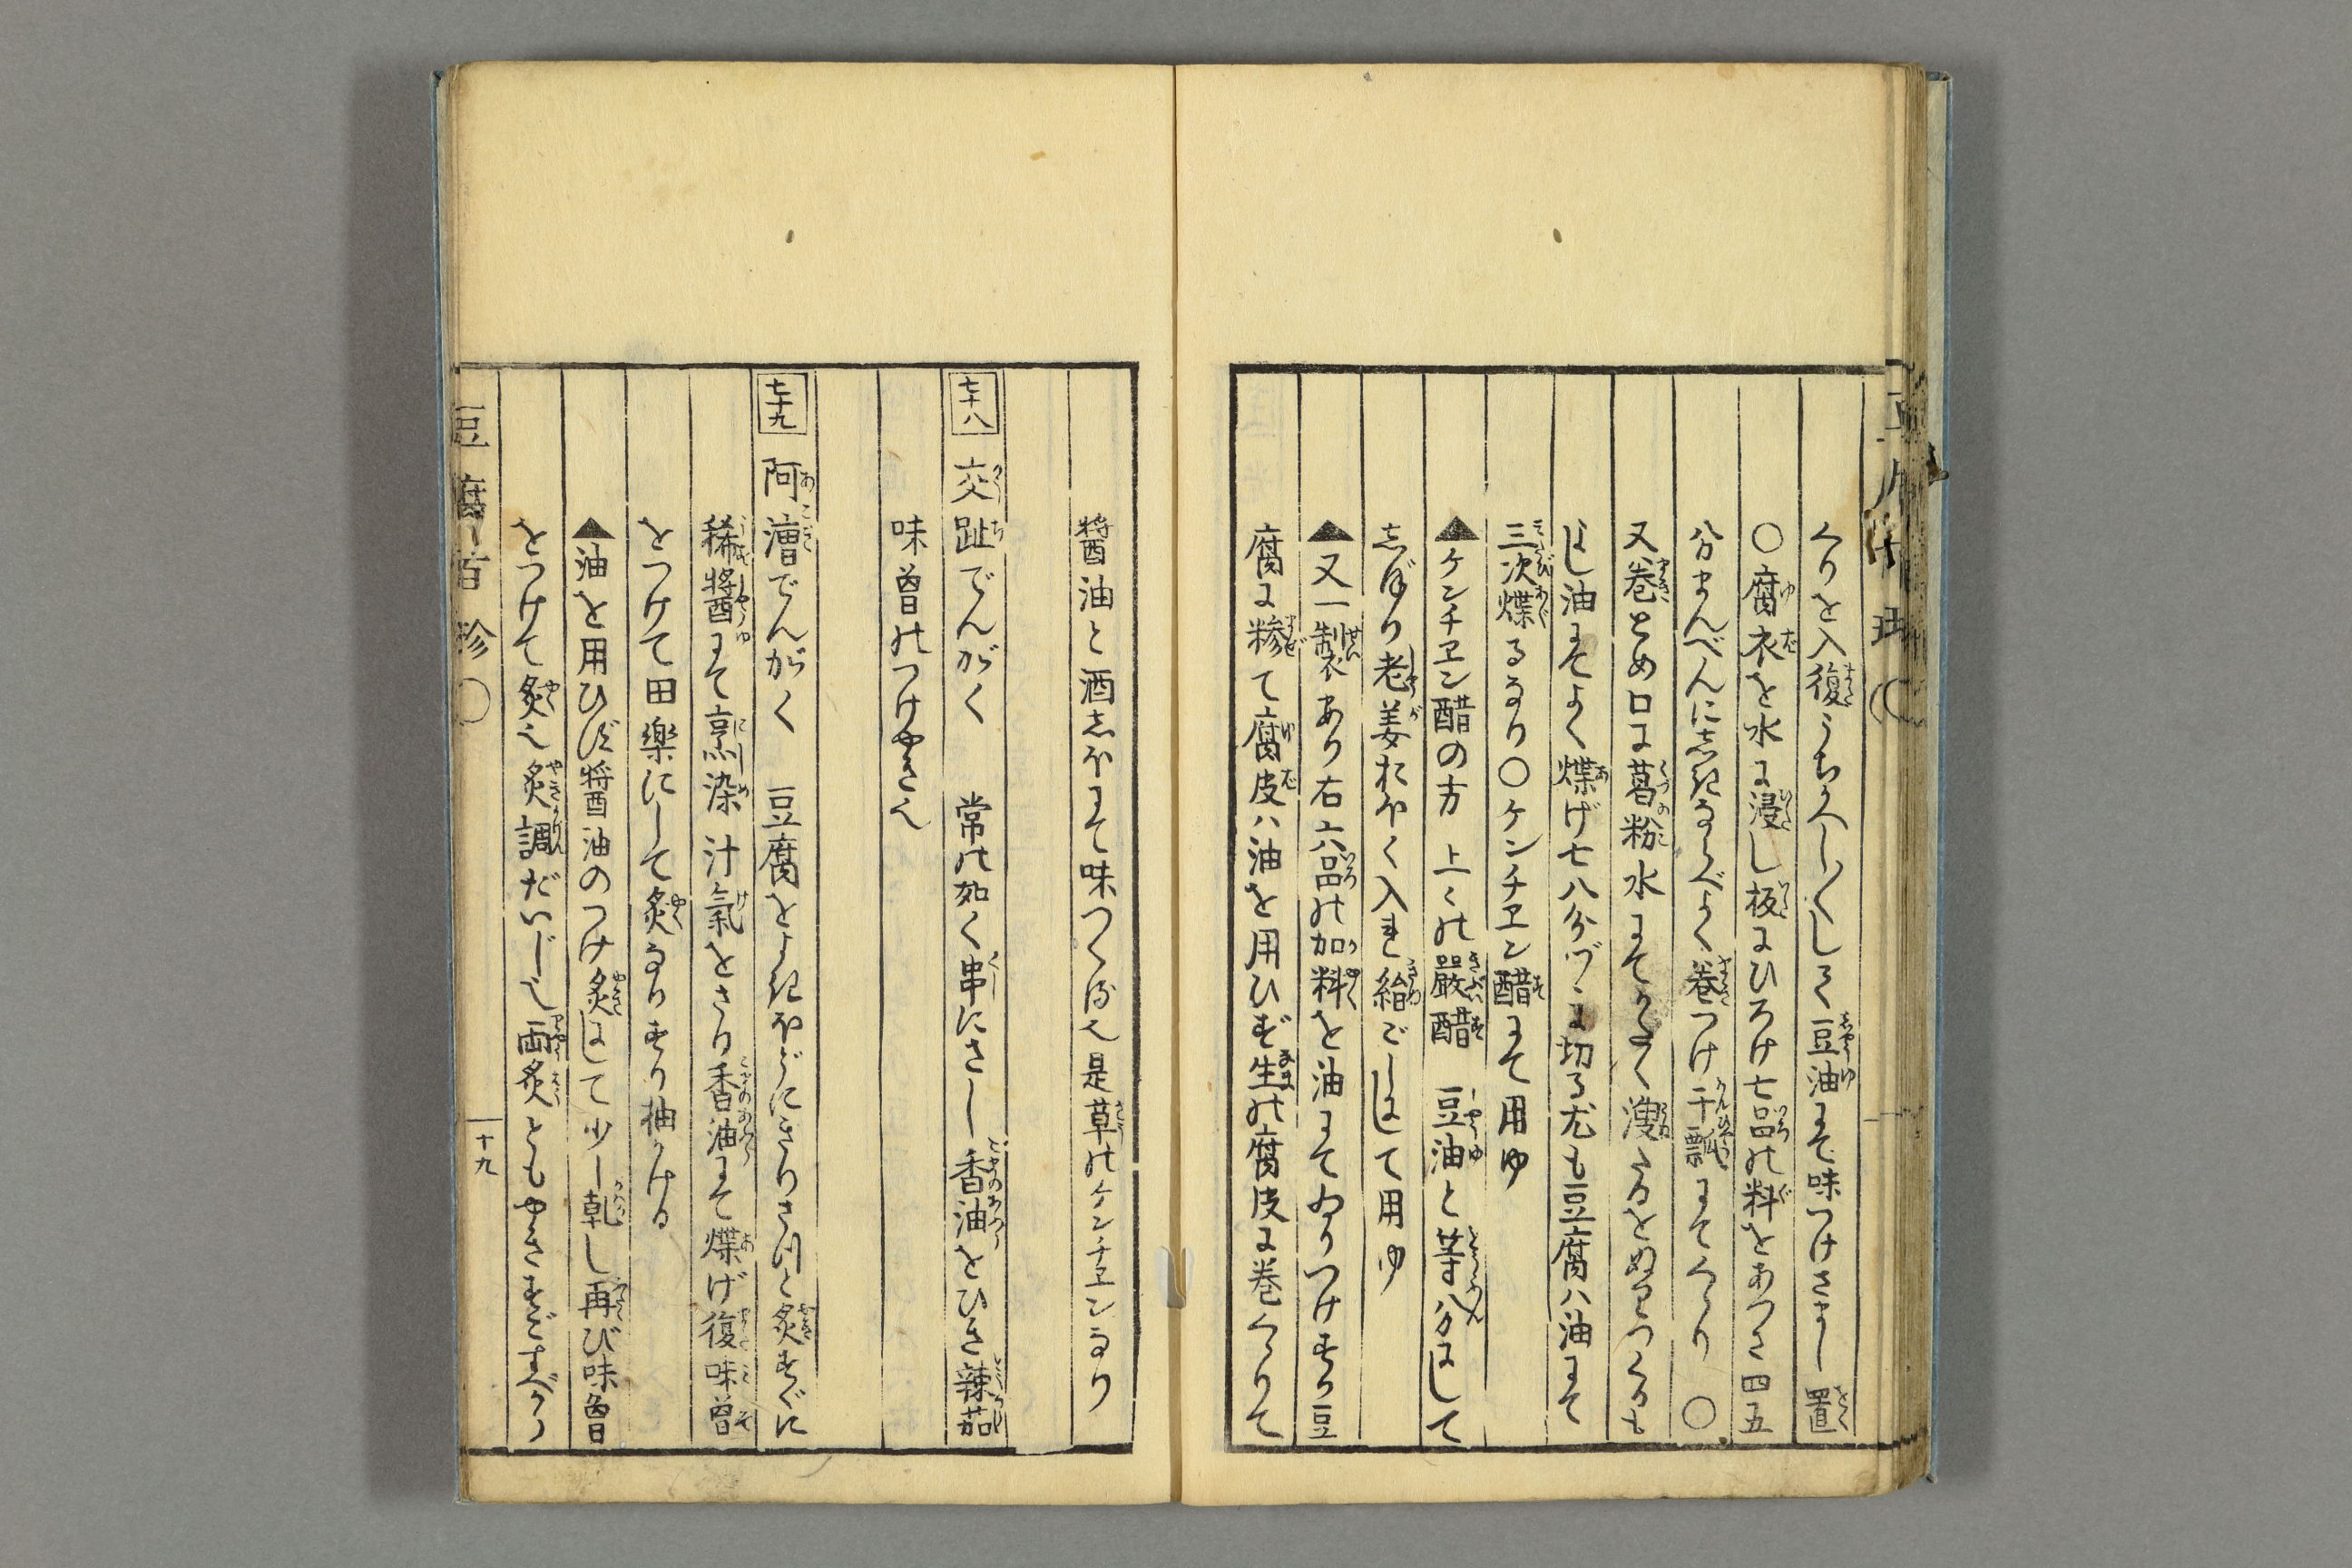 くりを入復うちかへし〳〵して豆油にて味つけさまし置
○腐衣を水に浸し板にひろけ七品の料をあつさ四五
分まんべんにしきならべよく巻つけ干瓢にてくゝり○
又巻とめ口に葛粉水にてかたく溲たるをぬりつくるも
よし油にてよく煠げ七八分づゝに切る尤も豆腐ハ油にて
三次煠るなり○ケンチヱン醋にて用ゆ
▲ケンチヱン醋の方 上々の嚴醋 豆油と等分にして
しぼり老姜おほく入れ絵ごしにして用ゆ
▲又一製あり右六品の加料を油にてゐりつけすり豆
腐に糝て腐皮ハ油を用ひず生の腐皮に巻くゝりて
醬油と酒しほにて味つくる也是草のケンチヱンなり
七十八 交趾でんがく 常の如く串にさし香油をひき辣茄
味曽のつけやき也
七十九 阿漕でんがく 豆腐をよきほどにきりさつと炙すぐに
稀醬にて烹染汁氣をさり香油にて煠げ復味曽
をつけて田樂にして炙なりすり柚かける
▲油を用ひず醬油のつけ炙にして少し乾し再び味噌
をつけて炙也炙調だいじ也両炙ともやきすごすべからず
豆腐百珍○ 十九